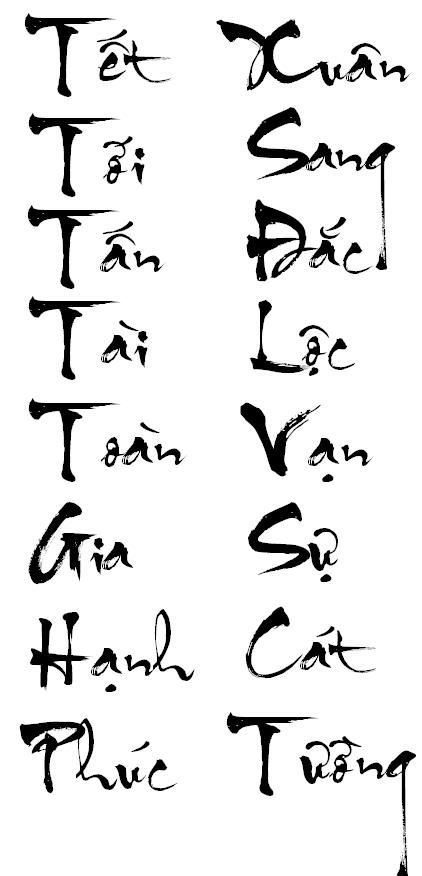 Tết
Tới
Tấn
Tài
Toàn
Gia
Hạnh
Phúc
Xuân
Sang
Đắc
Lộc
Vạn
Sự
Cát
Tường